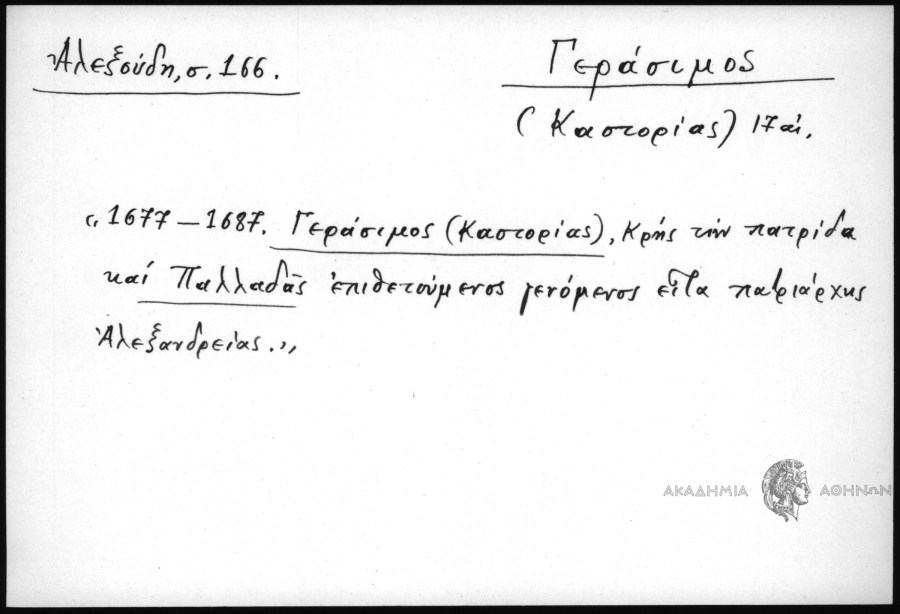 Ἀλεξούδη, σ. 166.
Γεράσιμος
(Καστορίας) 17 αἰ.
"1677 – 1687. Γεράσιμος (Καστορίας), Κρής τήν πατρίδα
καί Παλλαδᾶς ἐπιθετούμενος γενόμενος εἶτα πατριάρχης
Ἀλεξανδρείας."
ΑΚΑΔΗΜΙΑ ΑΘΗΝΩΝ